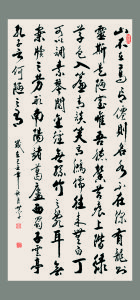 山不在高有僊則名水不在深有龍則
靈斯是陋室惟吾德馨苔痕上階綠
草色入簾青談笑有鴻儒往來無白丁
可以調素琴閱金經無絲竹之亂耳無
案牘之勞形南陽諸葛廬西蜀子雲亭
孔子云何陋之有